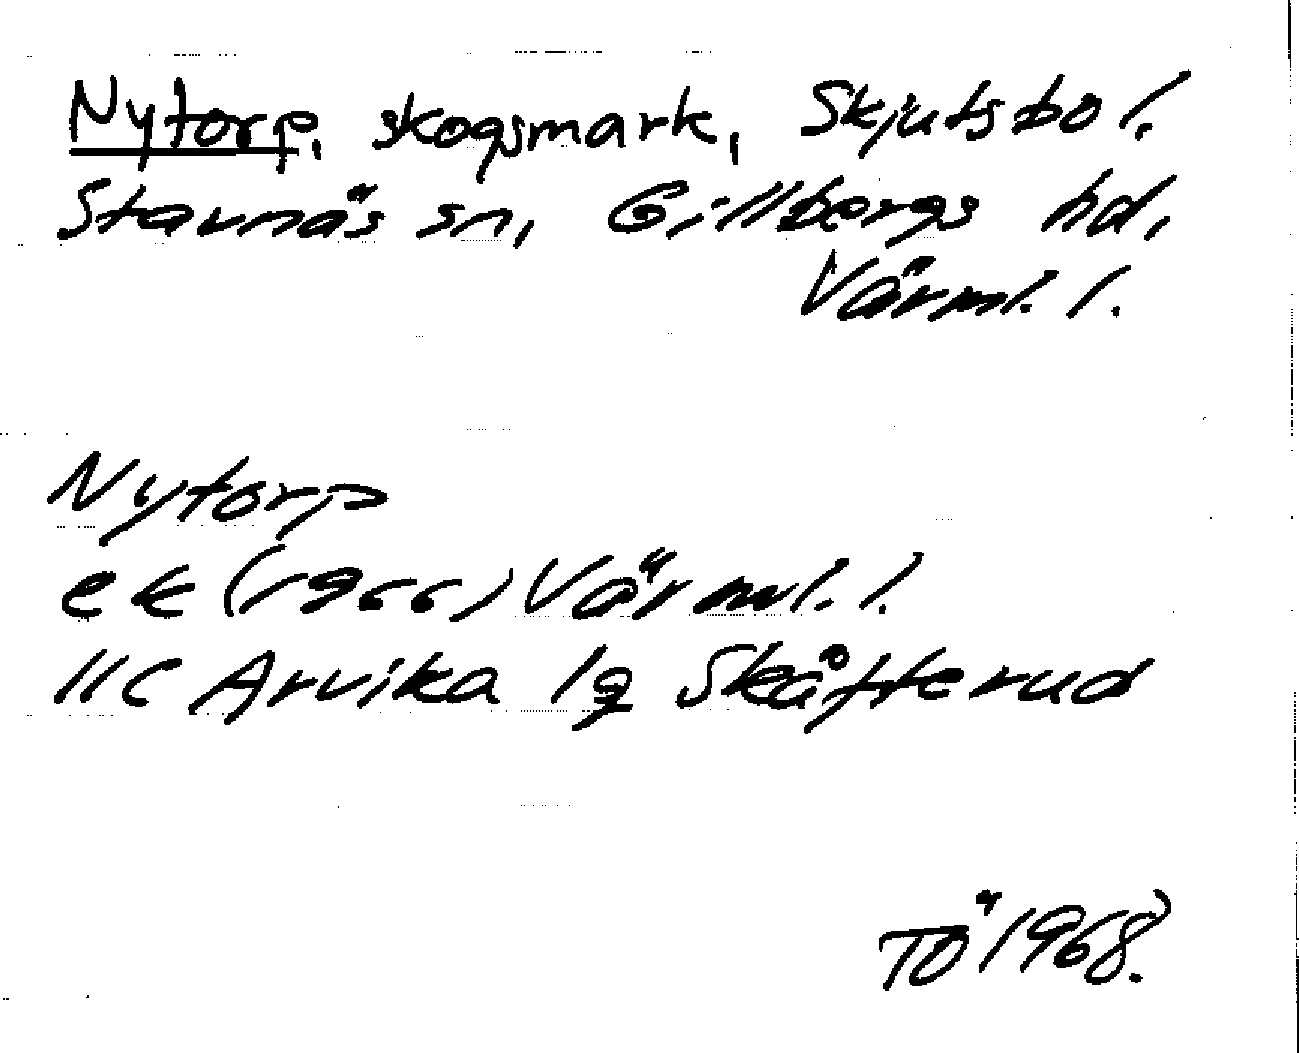 Nytorp, skogsmark, Skjutsbol.
Stavnäs sn, Gillbergs hd,
Värml. l.
Nytorp
ek (1966) Värml. l.
11C Arvika 1g Skåfterud
TÖ 1968.